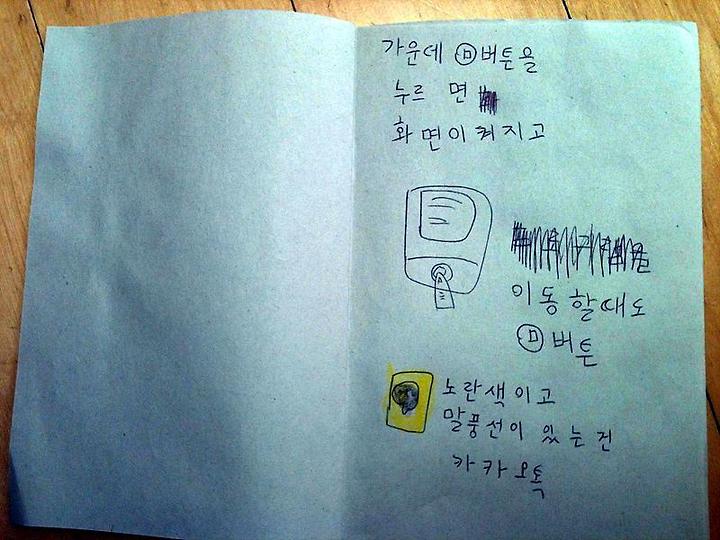 가운데 ㅁ버튼을
누르 면
화면이 켜지고
이동 할때도
ㅁ 버튼
노란색이고
말풍선이 있는건
카카오톡